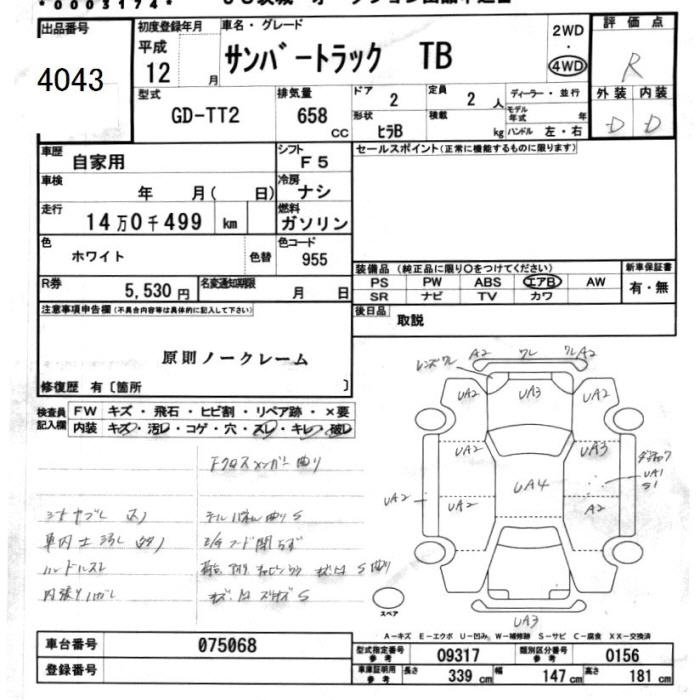 *0003174*
出品番号 初度登録年月 車名・グレード 2WD ・ 4WD 評価点
4043 平成 12 月 サンバートラック TB R
型式 GD-TT2 排気量 658 CC ドア 2 定員 2 人 ディーラー・並行 外装 内装
形状 ヒラB 積載 kg モデル年式 年 ハンドル 左・右 D D
車歴 自家用 シフト F5 セールスポイント(正常に機能するものに限ります)
車検 年 月( 日) 冷房 ナシ
走行 14万0千499 km 燃料 ガソリン
色 ホワイト 色替 色コード 955
装備品 (純正品に限り○をつけてください) 新車保証書
R券 5,530円 名変通知期限 月 日 PS PW ABS エアB AW 有・無
SR ナビ TV カワ
注意事項申告欄(不具合内容等は具体的に記入して下さい) 後日品 取説
原則ノークレーム
修復歴 有〔箇所 〕
検査員記入欄 FW キズ・飛石・ヒビ割・リペア跡・×要
内装 キズ・汚レ・コゲ・穴・スレ・キレ・破レ
A2 ワレ ワレ A2
UA2 UA3 UA2
UA2 UA3
UA2 UA4 UA1
UA2 A2 S1
UA3
Fクロスメンバー曲り
シートヤブレ
テールパネル曲り S
車内土汚レ
ハンドルスレ
内張りハガレ
スペア
A-キズ E-エクボ U-凹み W-補修跡 S-サビ C-腐食 XX-交換済
車台番号 075068 型式指定番号 参考 09317 類別区分番号 参考 0156
登録番号 車庫証明用 参考 長さ 339 cm 幅 147 cm 高さ 181 cm